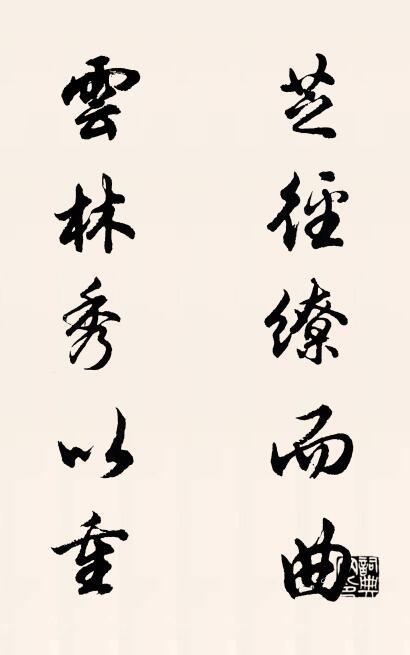 芝徑繚而曲
雲林秀以重